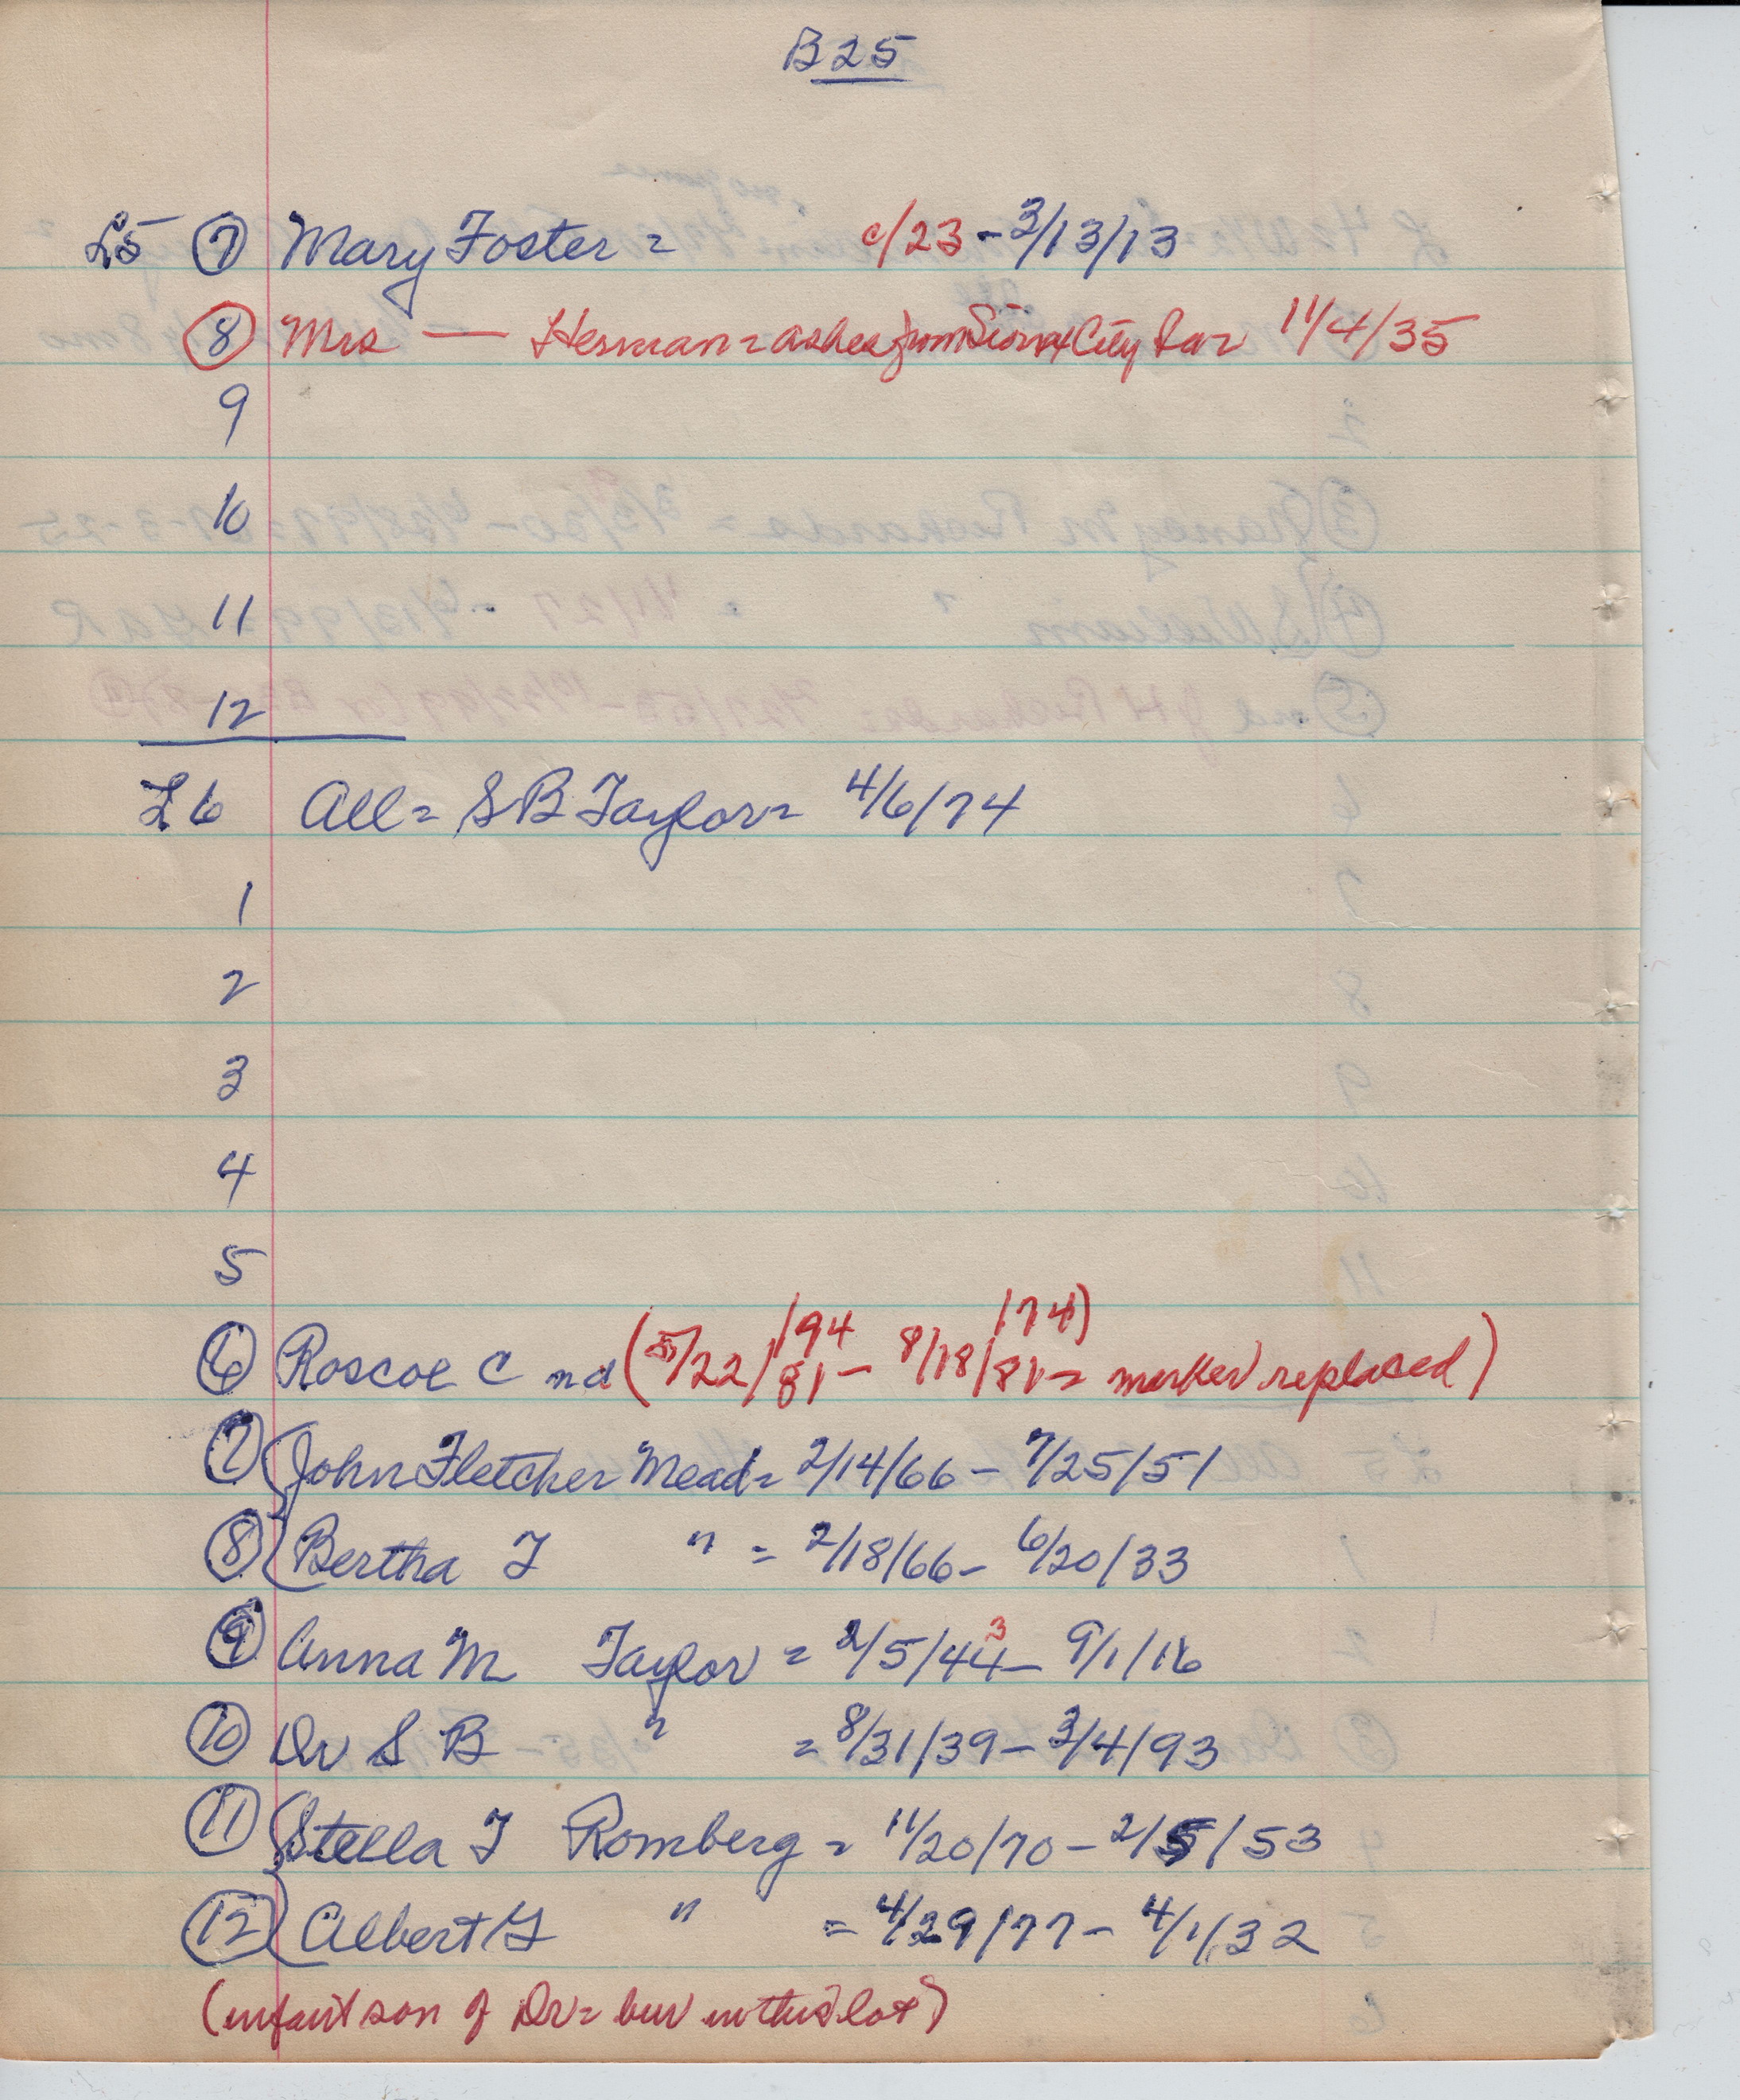 B25
L5 7 Mary Foster = c/23 - 3/13/13
8 Mrs — Herman = ashes from Sioux City Ia = 11/4/35
9
10
11
12
L6 All = S B Taylor = 4/6/74
1
2
3
4
5
/94 /74)
6 Roscoe C nd (5/22/81 - 8/18/81 = marker replaced)
7 John Fletcher Mead = 2/14/66 - 7/25/51
8 Bertha T " = 2/18/66 - 6/20/33
3
9 Anna M Taylor = 2/5/44 - 9/1/16
10 Dr S B " = 8/31/39 - 3/4/93
11 Stella T Romberg = 11/20/70 - 2/5/53
12 Albert G " = 4/29/77 - 4/1/32
(infant son of Dr = bur in this lot)